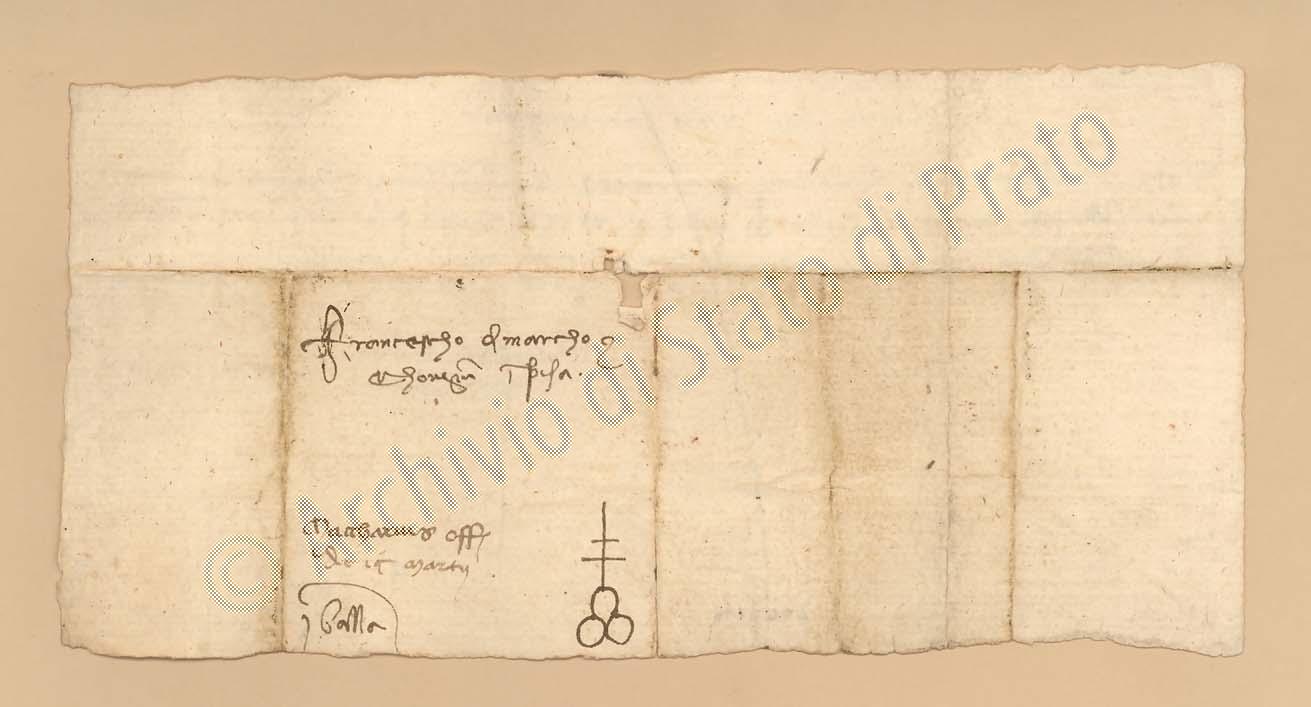 Francescho di marcho e
chonpangni Jpisa
Zaccharius off
die 19 martii
j balla
© Archivio di Stato di Prato